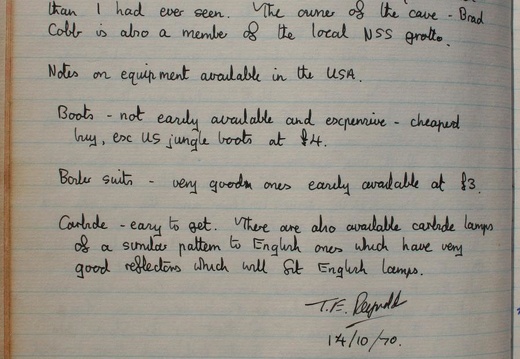 than I had ever seen. The owner of the cave - Brad
Cobb is also a member of the local NSS grotto.
Notes on equipment available in the USA.
Boots - not easily available and expensive - cheapest
buy, esc US jungle boots at £4.
Boiler suits - very good ones easily available at £3.
Carbide - easy to get. There are also available carbide lamps
of a similar pattern to English ones which have very
good reflectors which will fit English lamps.
T.E. Reynolds
14/10/70.